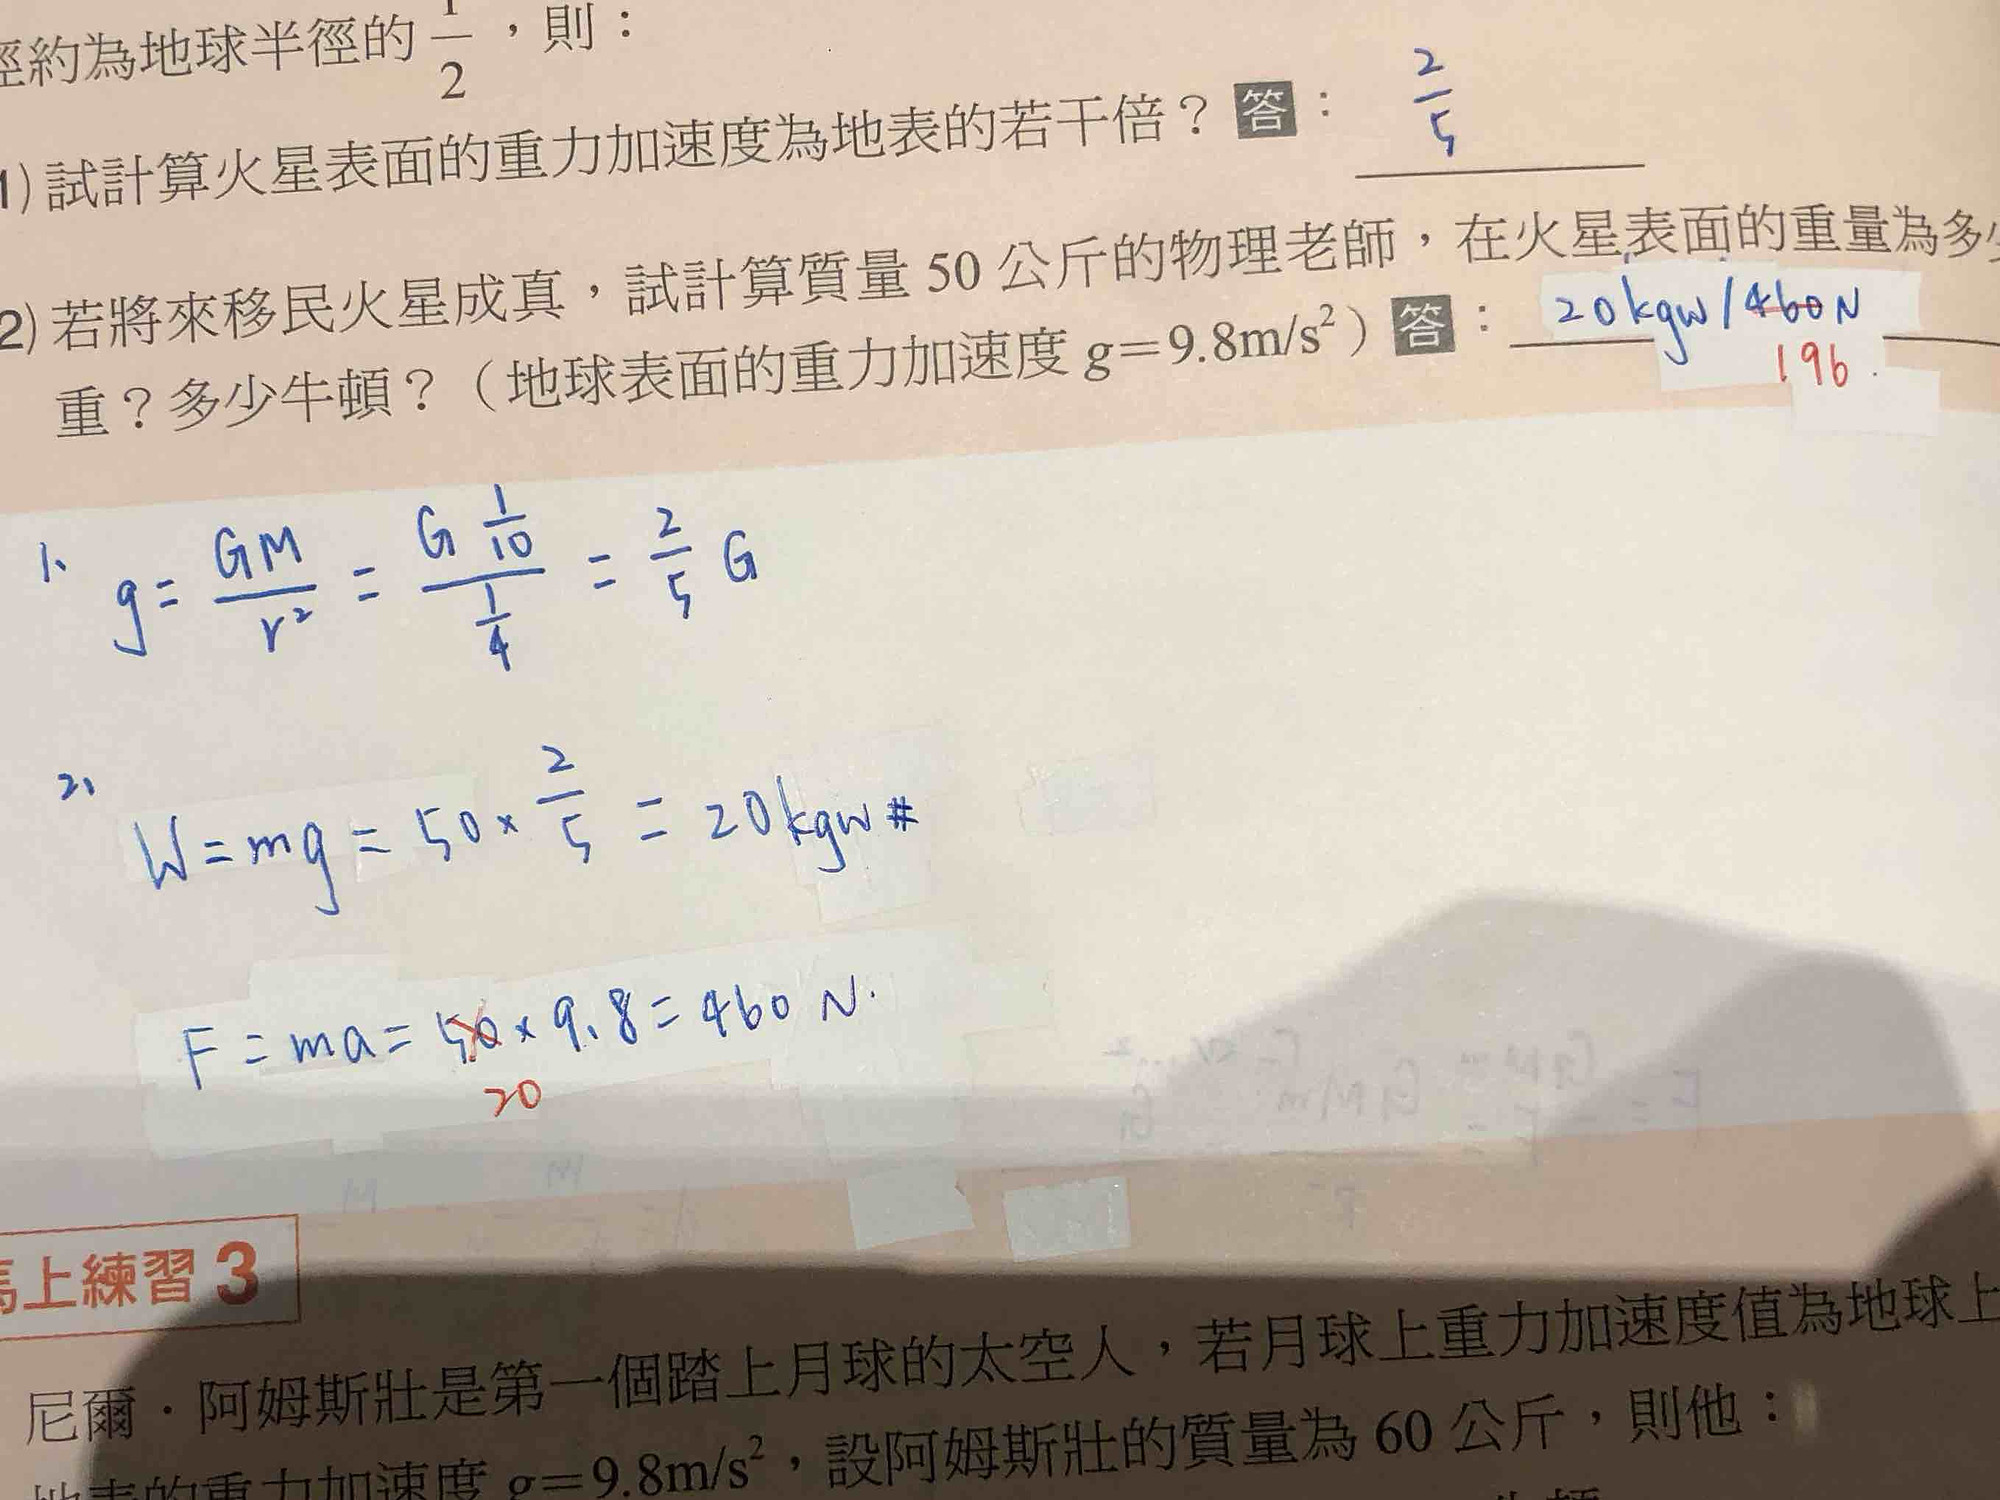 徑約為地球半徑的 1/2，則：
1) 試計算火星表面的重力加速度為地表的若干倍？答： 2/5
2) 若將來移民火星成真，試計算質量 50 公斤的物理老師，在火星表面的重量為多少
重？多少牛頓？（地球表面的重力加速度 g＝9.8m/s²）答： 20kgw/460N
196
1、 g = GM/r² = G 1/10 / 1/4 = 2/5 G
2、 W = mg = 50 × 2/5 = 20kgw #
F = ma = 50 × 9.8 = 460 N.
20
馬上練習 3
尼爾·阿姆斯壯是第一個踏上月球的太空人，若月球上重力加速度值為地球上
地表的重力加速度 g＝9.8m/s²，設阿姆斯壯的質量為 60 公斤，則他：